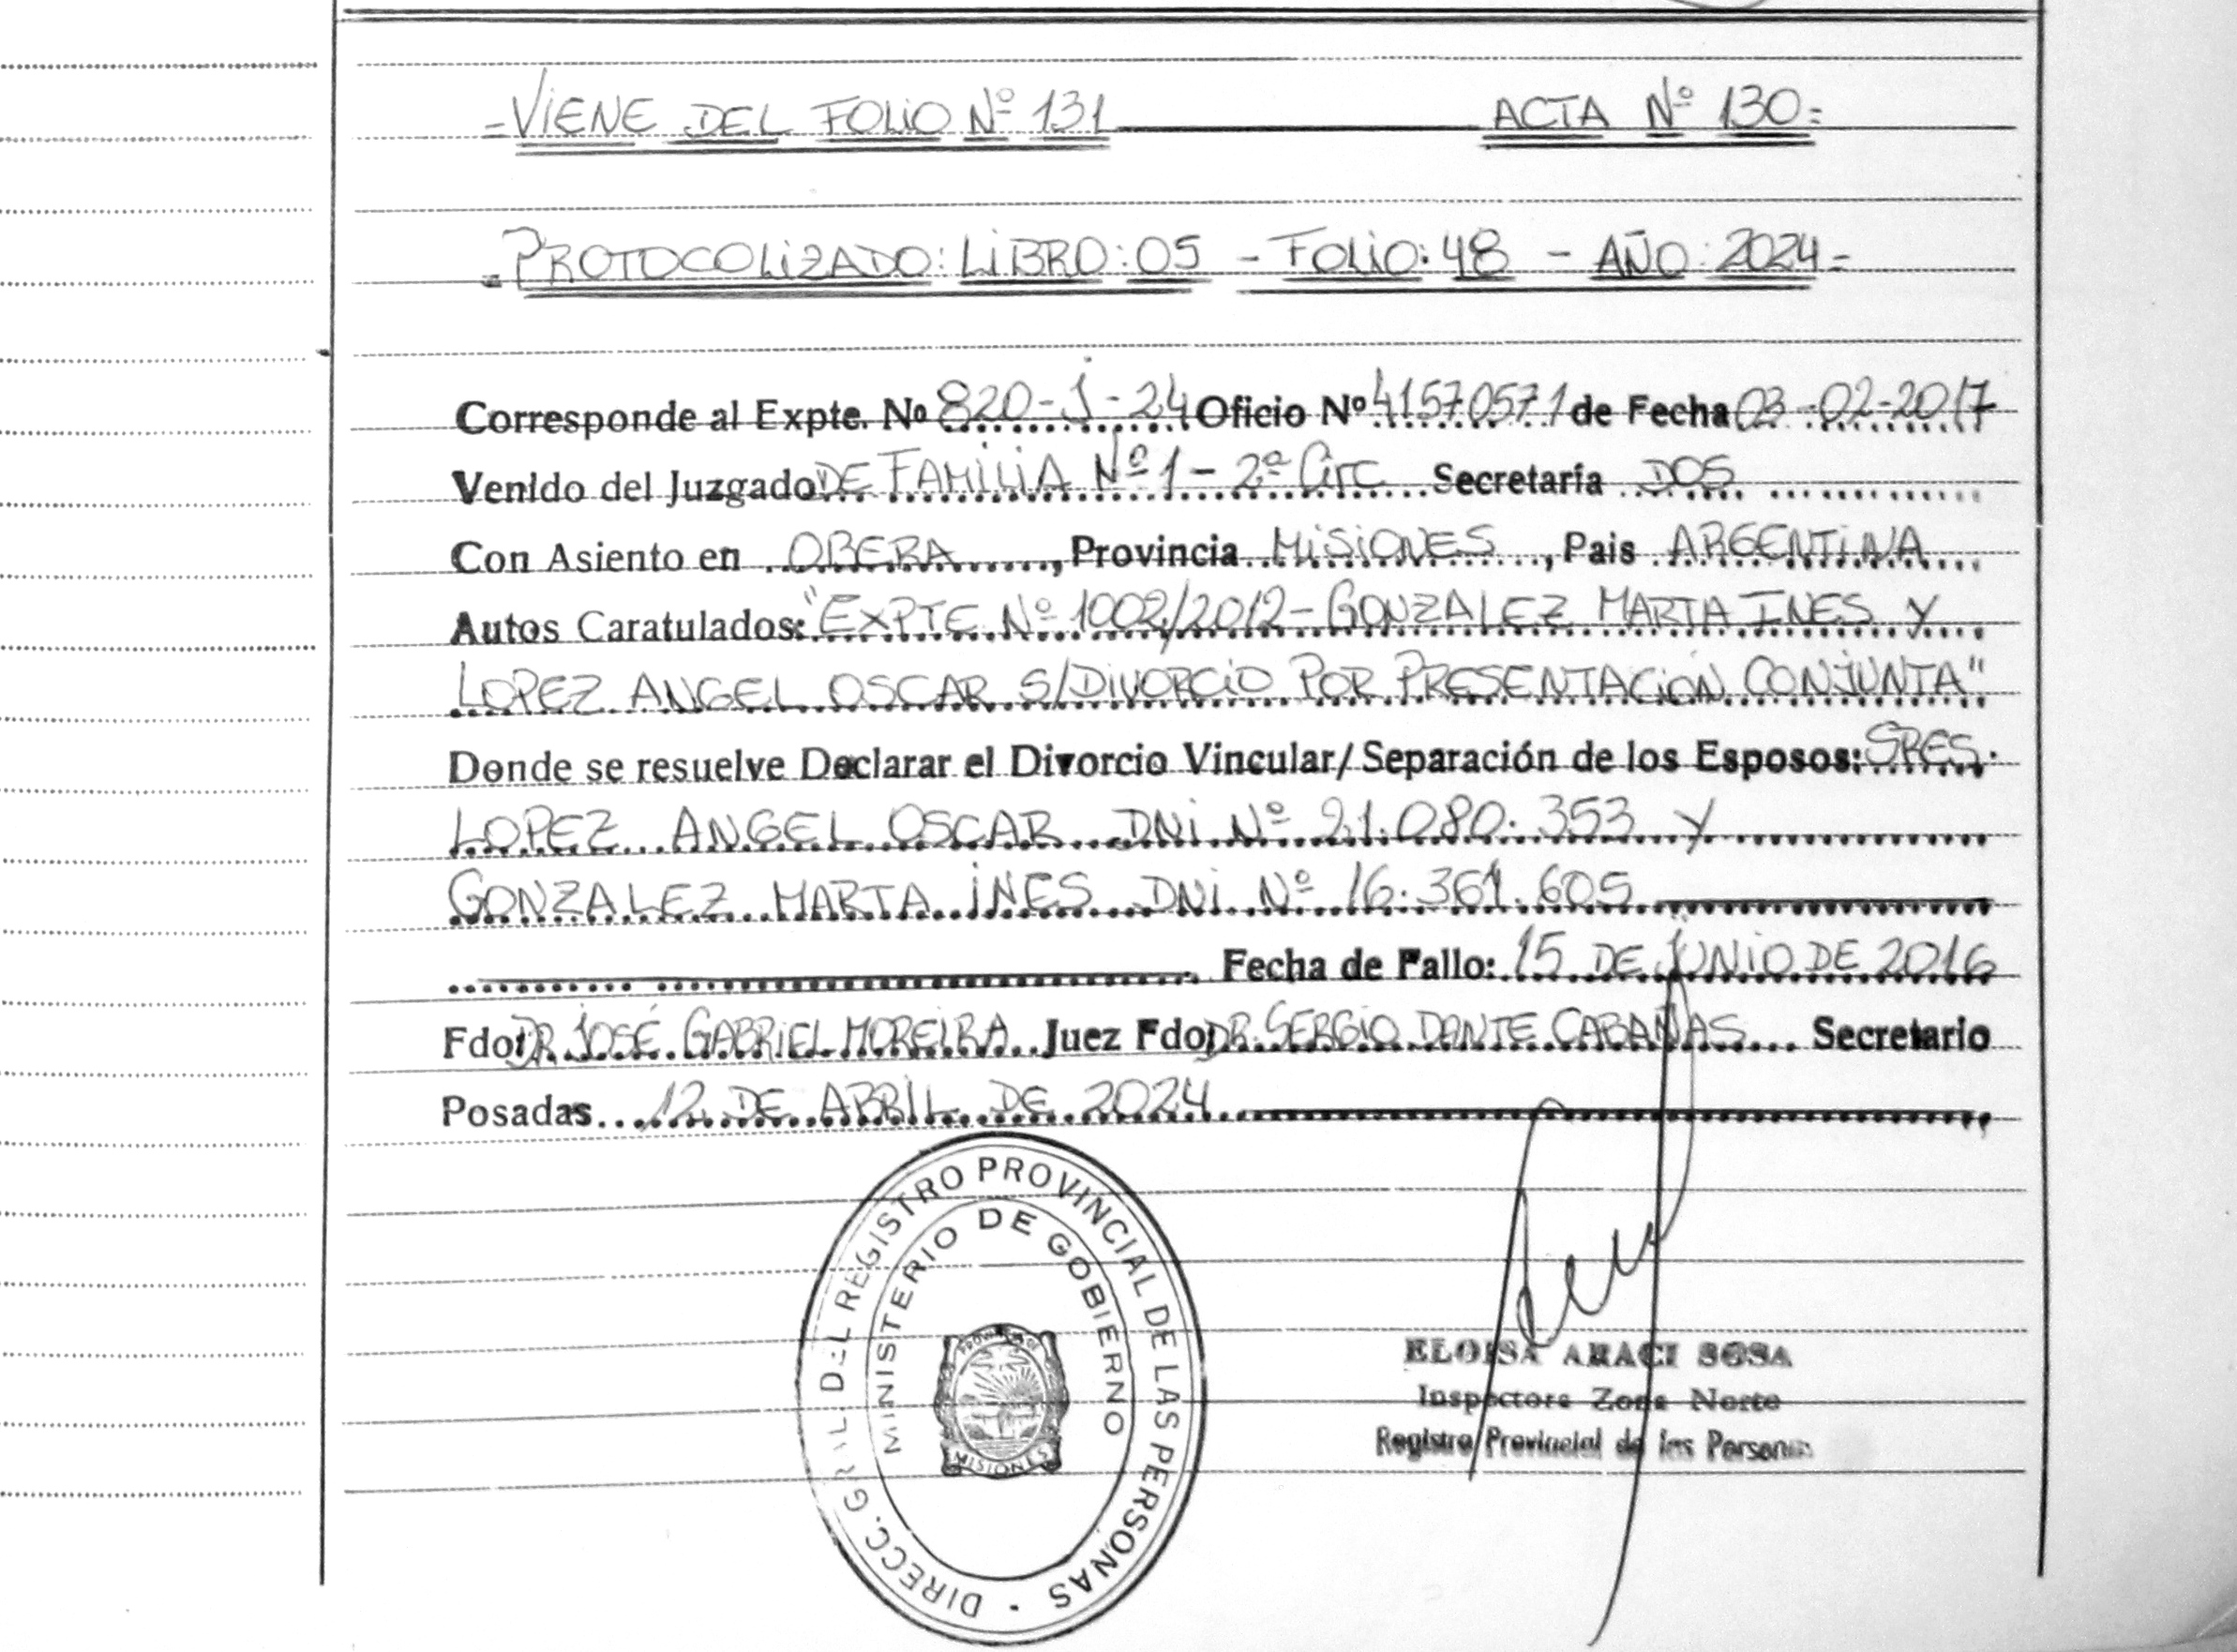 =VIENE DEL FOLIO Nº 131 ACTA Nº 130=
=PROTOCOLIZADO: LIBRO: 05 - FOLIO: 48 - AÑO: 2024=
Corresponde al Expte. Nº 820-J-24 Oficio Nº 41570571 de Fecha 03-02-2017
Venido del Juzgado DE FAMILIA Nº 1 - 2ª Circ Secretaría DOS
Con Asiento en OBERA, Provincia MISIONES, Pais ARGENTINA
Autos Caratulados: "EXPTE Nº 1002/2012 - GONZALEZ MARTA INES Y
LOPEZ ANGEL OSCAR S/DIVORCIO POR PRESENTACION CONJUNTA"
Donde se resuelve Declarar el Divorcio Vincular/Separación de los Esposos: SRES.
LOPEZ ANGEL OSCAR DNI Nº 21.080.353 Y
GONZALEZ MARTA INES DNI Nº 16.361.605
Fecha de Fallo: 15 DE JUNIO DE 2016
Fdo: DR JOSÉ GABRIEL MOREIRA Juez Fdo: DR. SERGIO DANTE CABAÑAS Secretario
Posadas 12 DE ABRIL DE 2024
DIRECC. GRIL. DEL REGISTRO PROVINCIAL DE LAS PERSONAS
MINISTERIO DE GOBIERNO
MISIONES
ELOISA ARACI SOSA
Inspectora Zona Norte
Registro Provincial de las Personas